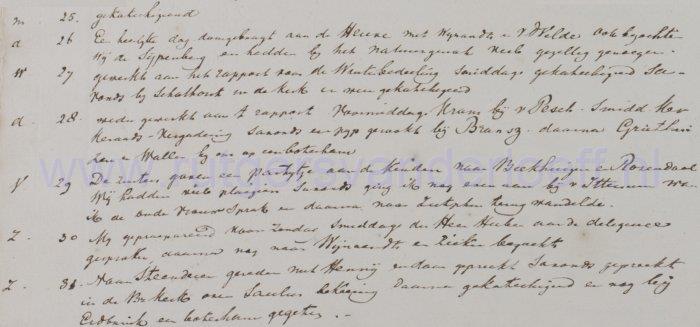 m 25. gekatechiseerd
d 26 Een heelijke dag doorgebragt aan de Steeve met Wijnandts & v d Velde ook bezochten
wij de Lippenberg en hadden bij het natuurgenot veel gezellig genoegen.
w 27 gewerkt aan het rapport van de Winterbedeeling smiddags gekatechiseerd Sa-
vonds bij Schathorst in de kerk en weer gekatechiseerd
d. 28. weder gewerkt aan 't rapport voormiddags bij v Pesch - Smidd Ker
Kerraads-Vergadering savonds een pyp gerookt bij daarna
van Walle bij mij op een boterham
v 29 De gaven een partytje aan de kinderen naar Beekhuizen & Rosendaal
Wij hadden veel plaizier Savonds ging ik nog even aan bij v Itersum wa
ik de oude vrouw sprak en daarna naar Zutphen terug wandelde.
Z. 30 My geprepareerd voor Zondag Smiddags den Heer aan de deligence
gesproken, daarna nog naar Wijnaendts en Zieken bezocht
Z. 31 Naar Steenderen gereden met Hennij en daar gepreekt Savonds gepreekt
in de Br. kerk over Saulus bekeering daarna gekatechiseerd en nog bij
Erdbrink een boterham gegeten. -
www.rutgersvanderloeff.nl